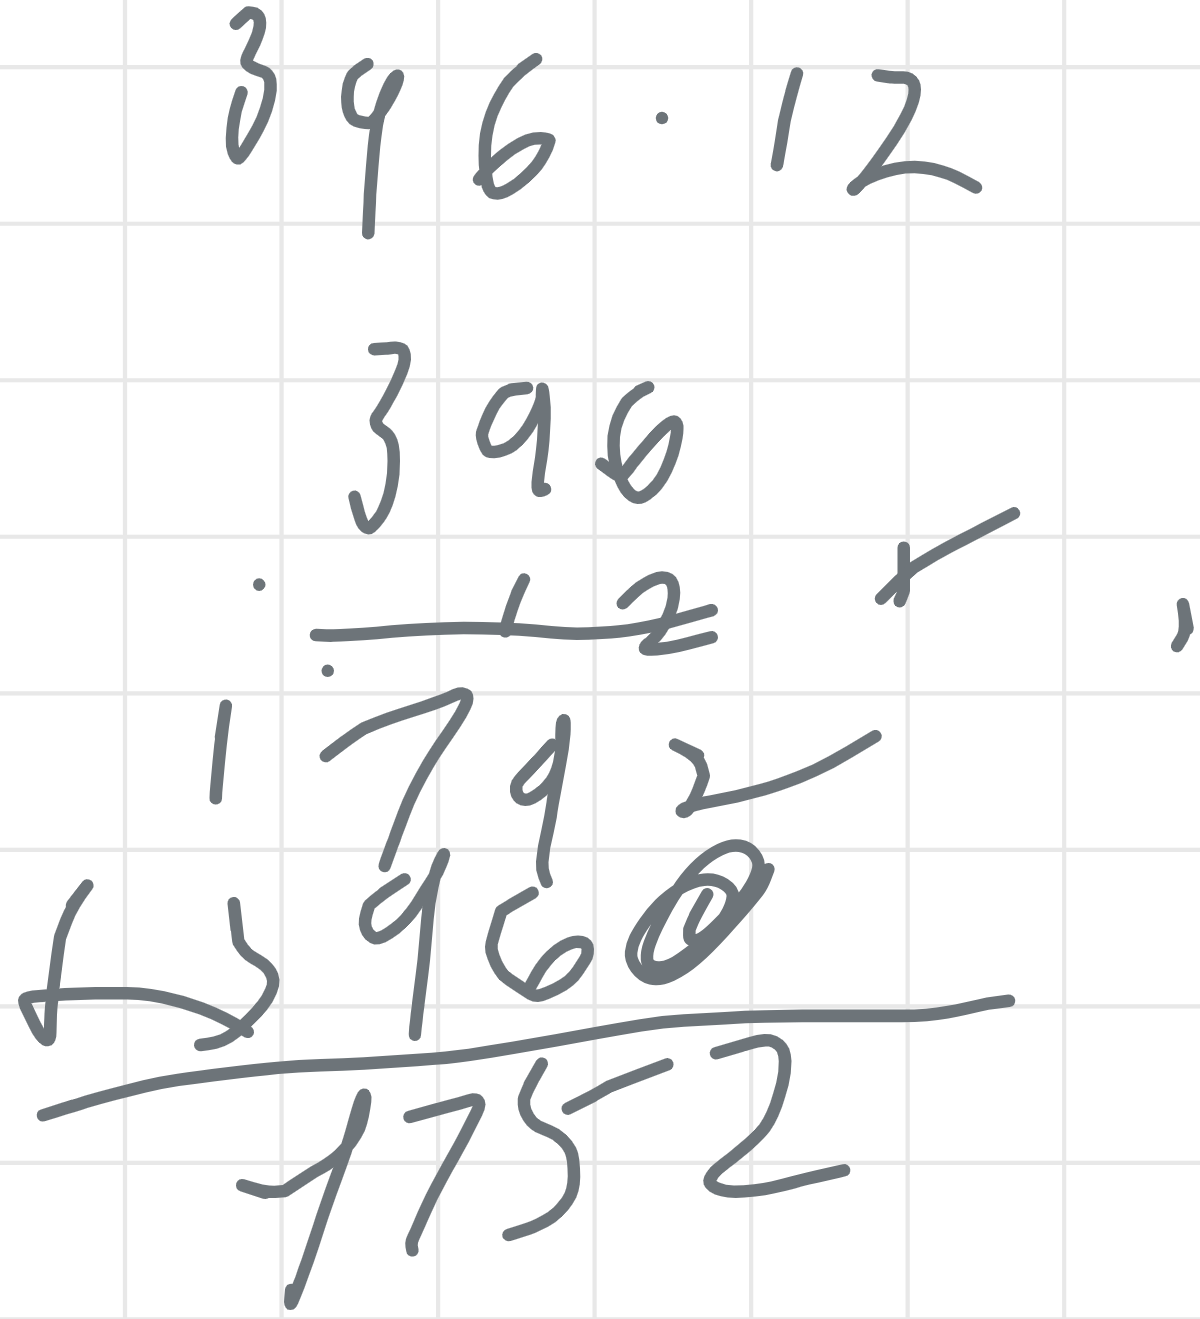 396 · 12
396
· 12
1 792
+ 3960
4752